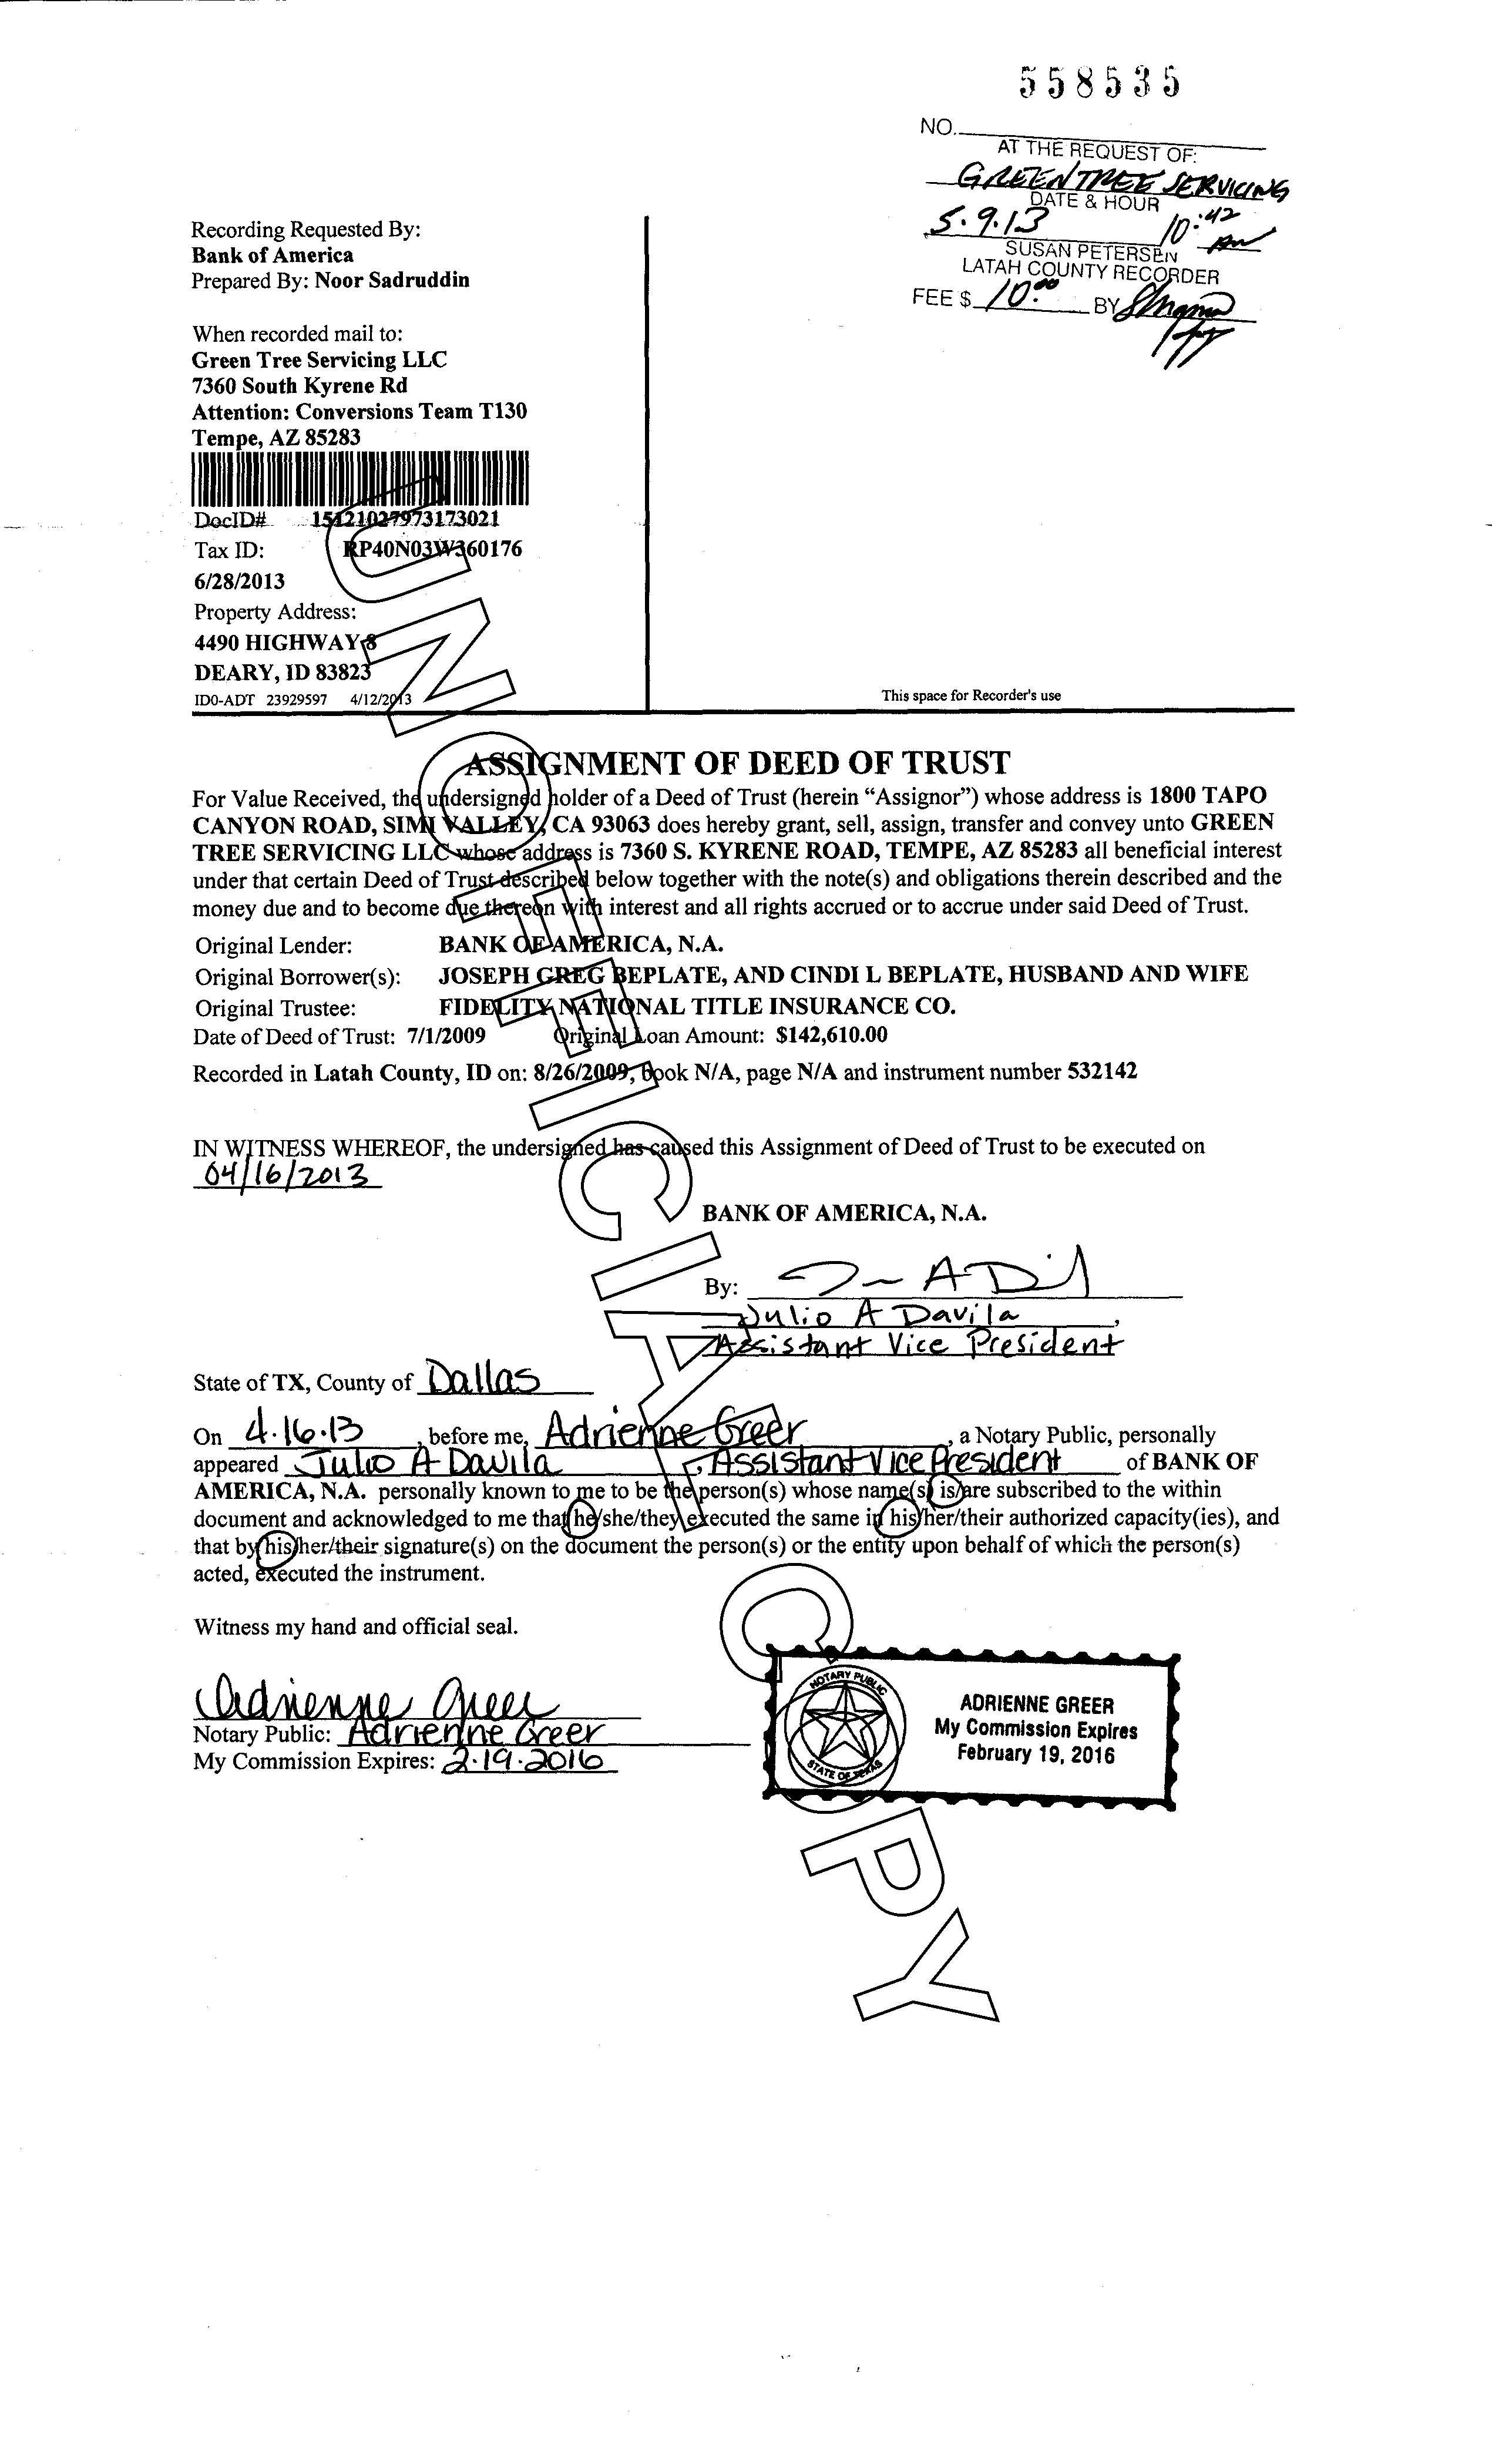 558535
NO.
AT THE REQUEST OF:
GREEN TREE SERVICING
DATE & HOUR
5.9.13 10:42 AM
SUSAN PETERSEN
LATAH COUNTY RECORDER
FEE $ 10.00 BY
Recording Requested By:
Bank of America
Prepared By: Noor Sadruddin
When recorded mail to:
Green Tree Servicing LLC
7360 South Kyrene Rd
Attention: Conversions Team T130
Tempe, AZ 85283
DocID# 15421027973173021
Tax ID: RP40N03W360176
6/28/2013
Property Address:
4490 HIGHWAY 8
DEARY, ID 83823
ID0-ADT 23929597 4/12/2013
This space for Recorder's use
ASSIGNMENT OF DEED OF TRUST
For Value Received, the undersigned holder of a Deed of Trust (herein “Assignor”) whose address is 1800 TAPO
CANYON ROAD, SIMI VALLEY, CA 93063 does hereby grant, sell, assign, transfer and convey unto GREEN
TREE SERVICING LLC whose address is 7360 S. KYRENE ROAD, TEMPE, AZ 85283 all beneficial interest
under that certain Deed of Trust described below together with the note(s) and obligations therein described and the
money due and to become due thereon with interest and all rights accrued or to accrue under said Deed of Trust.
Original Lender: BANK OF AMERICA, N.A.
Original Borrower(s): JOSEPH GREG BEPLATE, AND CINDI L BEPLATE, HUSBAND AND WIFE
Original Trustee: FIDELITY NATIONAL TITLE INSURANCE CO.
Date of Deed of Trust: 7/1/2009 Original Loan Amount: $142,610.00
Recorded in Latah County, ID on: 8/26/2009, book N/A, page N/A and instrument number 532142
IN WITNESS WHEREOF, the undersigned has caused this Assignment of Deed of Trust to be executed on
04/16/2013
BANK OF AMERICA, N.A.
By:
Julio A Davila,
Assistant Vice President
State of TX, County of Dallas
On 4.16.13, before me, Adrienne Greer, a Notary Public, personally
appeared Julio A Davila, Assistant Vice President of BANK OF
AMERICA, N.A. personally known to me to be the person(s) whose name(s) is/are subscribed to the within
document and acknowledged to me that he/she/they executed the same in his/her/their authorized capacity(ies), and
that by his/her/their signature(s) on the document the person(s) or the entity upon behalf of which the person(s)
acted, executed the instrument.
Witness my hand and official seal.
Adrienne Greer
Notary Public: Adrienne Greer
My Commission Expires: 2.19.2016
NOTARY PUBLIC
STATE OF TEXAS
ADRIENNE GREER
My Commission Expires
February 19, 2016
UNOFFICIAL COPY